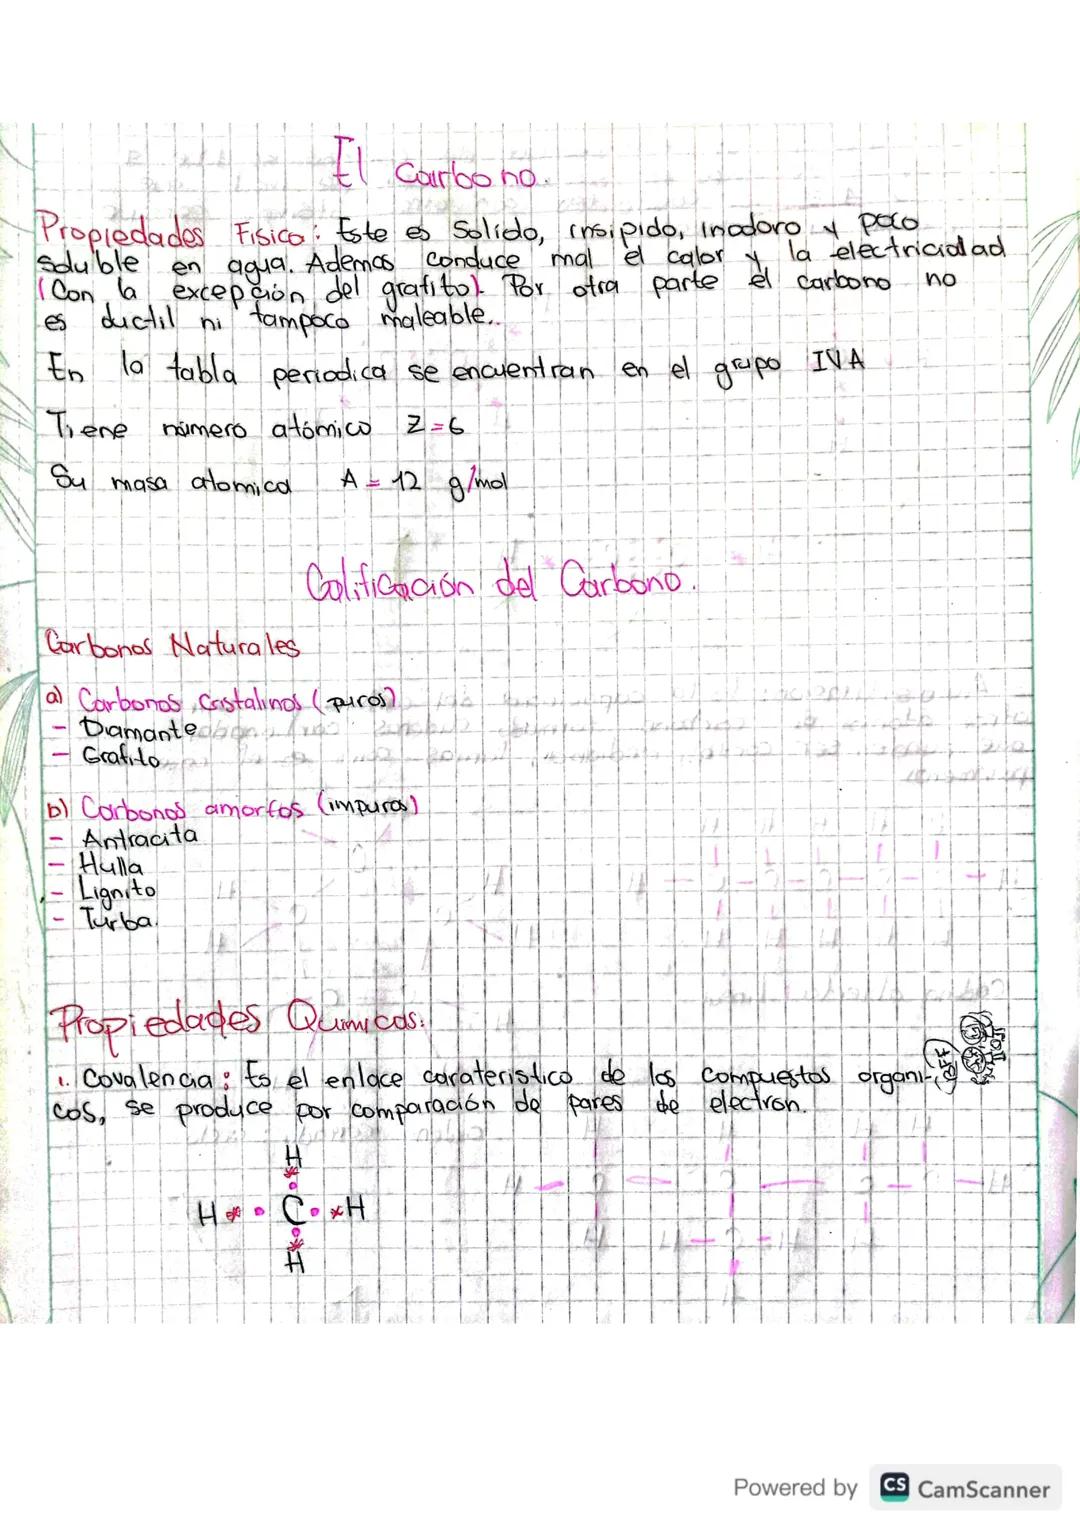 El Carbono.
Propiedades Fisica: Este es Solido, insipido, inodoro y poco
soluble en agua. Ademas conduce mal el calor y la electricidad
(Con la excepción del grafito). Por otra parte el carbono no
es ductil ni tampoco maleable..
En la tabla periodica se encuentran en el grupo IVA
Tiene número atómico Z=6
Su masa atomica A = 12 g/mol
Calificación del Carbono.
Carbonos Naturales
a) Carbonos Cristalinos (puros)
- Diamante
- Grafito
b) Carbonos amorfos (impuros)
- Antracita
- Hulla
- Lignito
- Turba.
Propiedades Quimicas:
1. Covalencia: Es el enlace carateristico de los compuestos organi-
cos, se produce por comparación de pares de electron.
H
H C H
H
Powered by CS CamScanner